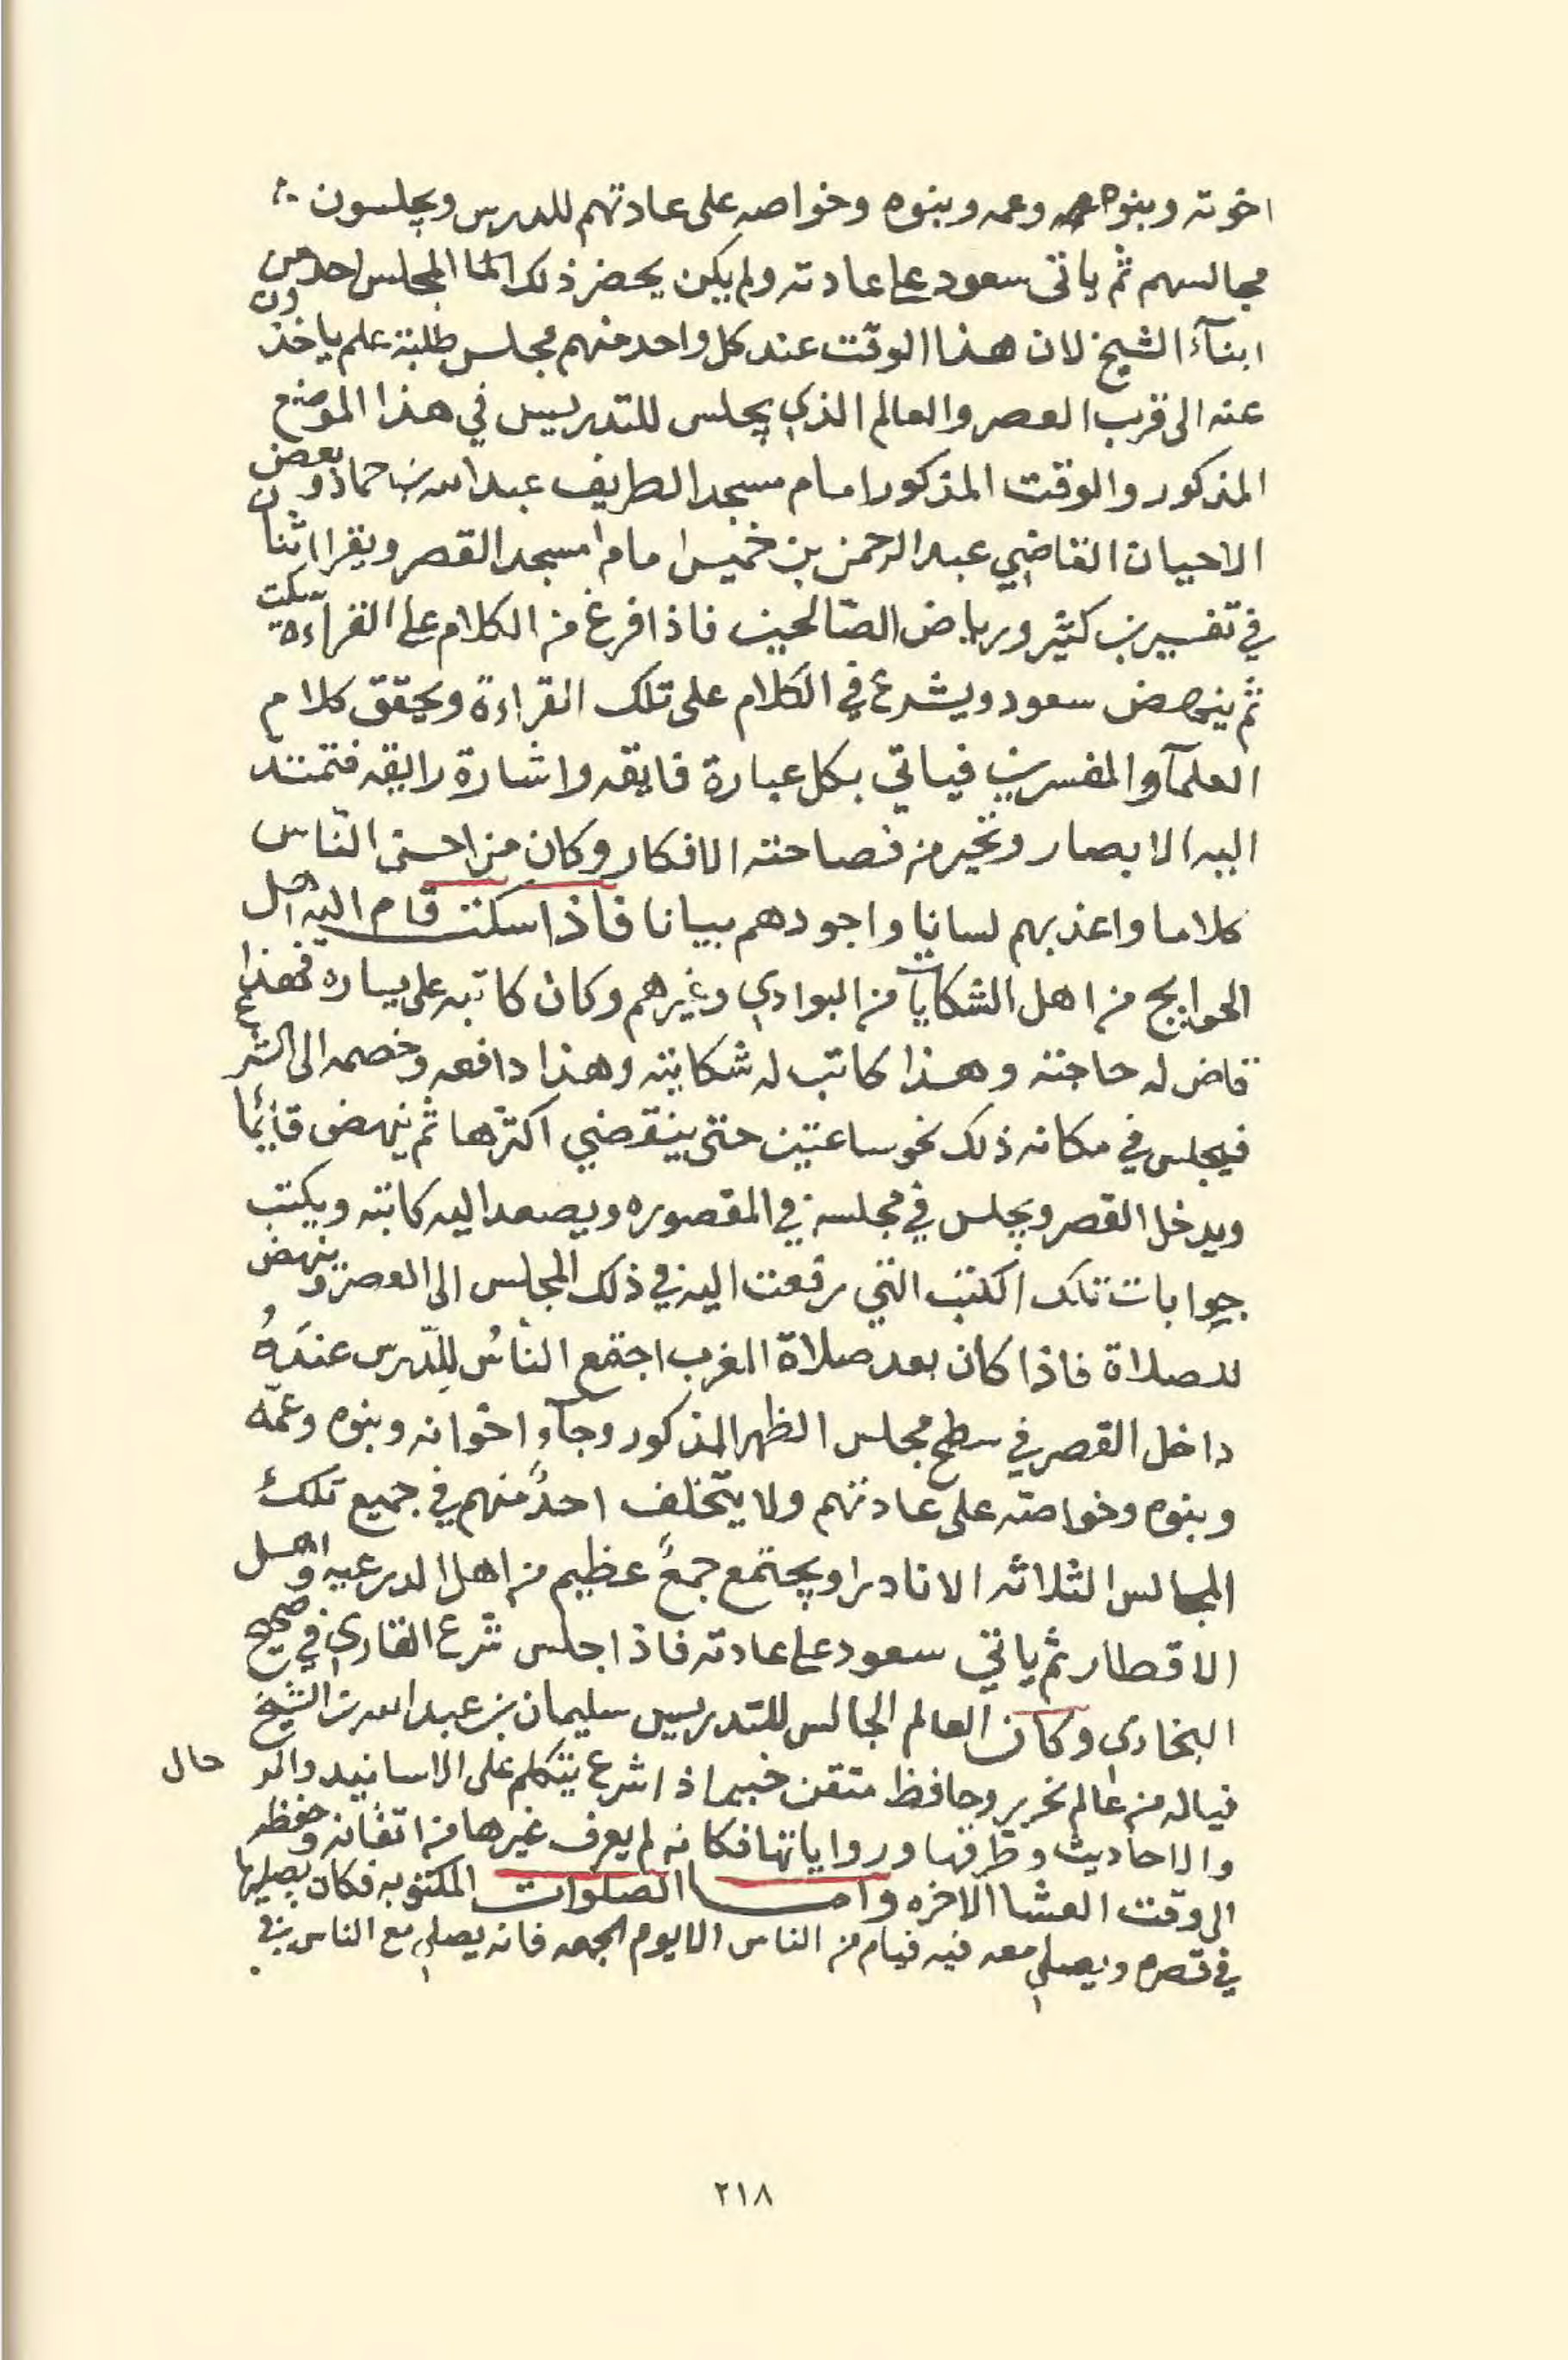 اخوته وبنوه وعمه وبنوه وخواصه على عادتهم للدرس ويجلسون
مجالسهم ثم ياتى سعود على عادته ولم يكن يحضر ذلك المجلس احد من
ابنآء الشيخ لان هذا الوقت عند كل واحد منهم مجلس طلبة علم ياخذون
عنه الى قرب العصر والعالم الذي يجلس للتدريس في هذا الموضع
المذكور والوقت المذكور امام مسجد الطريف عبدالله بن حماد وبعض
الاحيان القاضي عبدالرحمن بن خميس امام مسجد القصر ويقرا اثنان
في تفسير بن كثير ورياض الصّالحين فاذا فرغ من الكلام على القراءة سكت
ثم ينهض سعود ويشرع في الكلام على تلك القراءة ويحقق كلام
العلمآء والمفسرين فياتي بكل عبارة فايقه واشارة رايقه فتمتد
اليه الابصار وتحير من فصاحته الافكار وكان من احسن النّاس
كلاما واعذبهم لسانا واجودهم بيانا فاذا سكت قام اليه اهل
الحوايج من اهل الشكايات من البوادي وغيرهم وكان كاتبه على يساره فهذا
قاض له حاجته وهذا كاتب له شكايته وهذا دافعه وخصمه الى الشرع
فيجلس في مكانه ذلك نحو ساعتين حتى ينقضي اكثرها ثم ينهض قائما
ويدخل القصر ويجلس في مجلسه في المقصوره ويصعد اليه كاتبه ويكتب
جوابات تلك الكتب التي رفعت اليه في ذلك المجلس الى العصر وينهض
للصلاة فاذا كان بعد صلاة المغرب اجتمع النّاسُ للّدرس عندَهُ
داخل القصر في سطح مجلس الظهر المذكور وجآء اخوانه وبنوه وعمّه
وبنوه وخواصته على عادتهم ولا يتخلف احدٌ منهم في جميع تلك
المجالس الثلاثه الا نادرا ويجتمع جمعٌ عظيم من اهل الدرعيه واهل
الاقطار ثم ياتي سعود على عادته فاذا جلس شرع القاري في صحيح
البخاري وكان العالم الجالس للتدريس سليمان بن عبدالله بن الشيخ
فياله من عالم نحرير وحافظ متقن خبير اذا شرع يتكلم على الاسانيد والرجال
والاحاديث وطرقها ورواياتها فكانه لم يعرف غيرها من اتقانه وحفظه
الى وقت العشا الاخره واما الصلوات المكتوبه فكان يصليها
في قصره ويصلي معه فيه فيام من الناس الا يوم الجمعه فانه يصلي مع الناس في
٢١٨